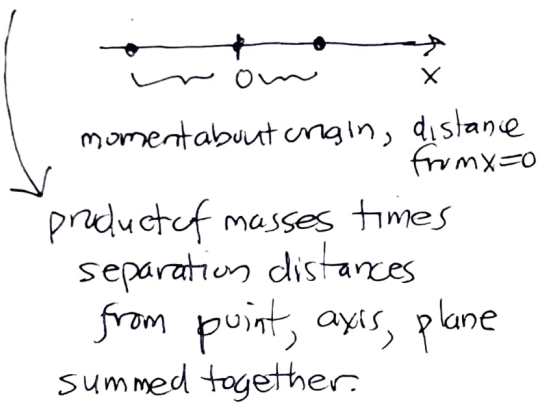 0
x
moment about origin, distance
from x=0
product of masses times
separation distances
from point, axis, plane
summed together.